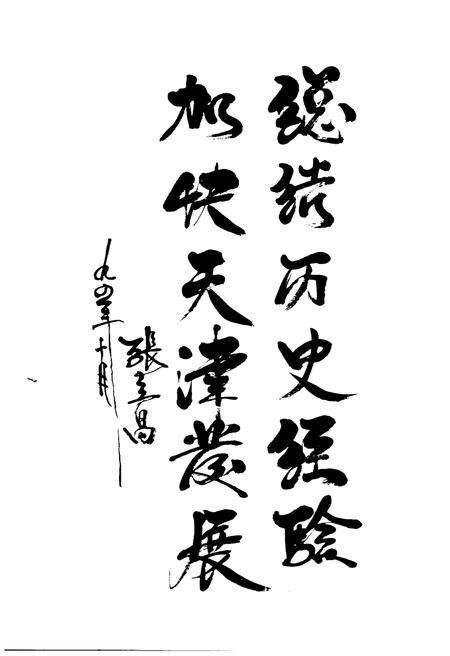 總结历史经验
加快天津發展
張立昌
一九九四年十月